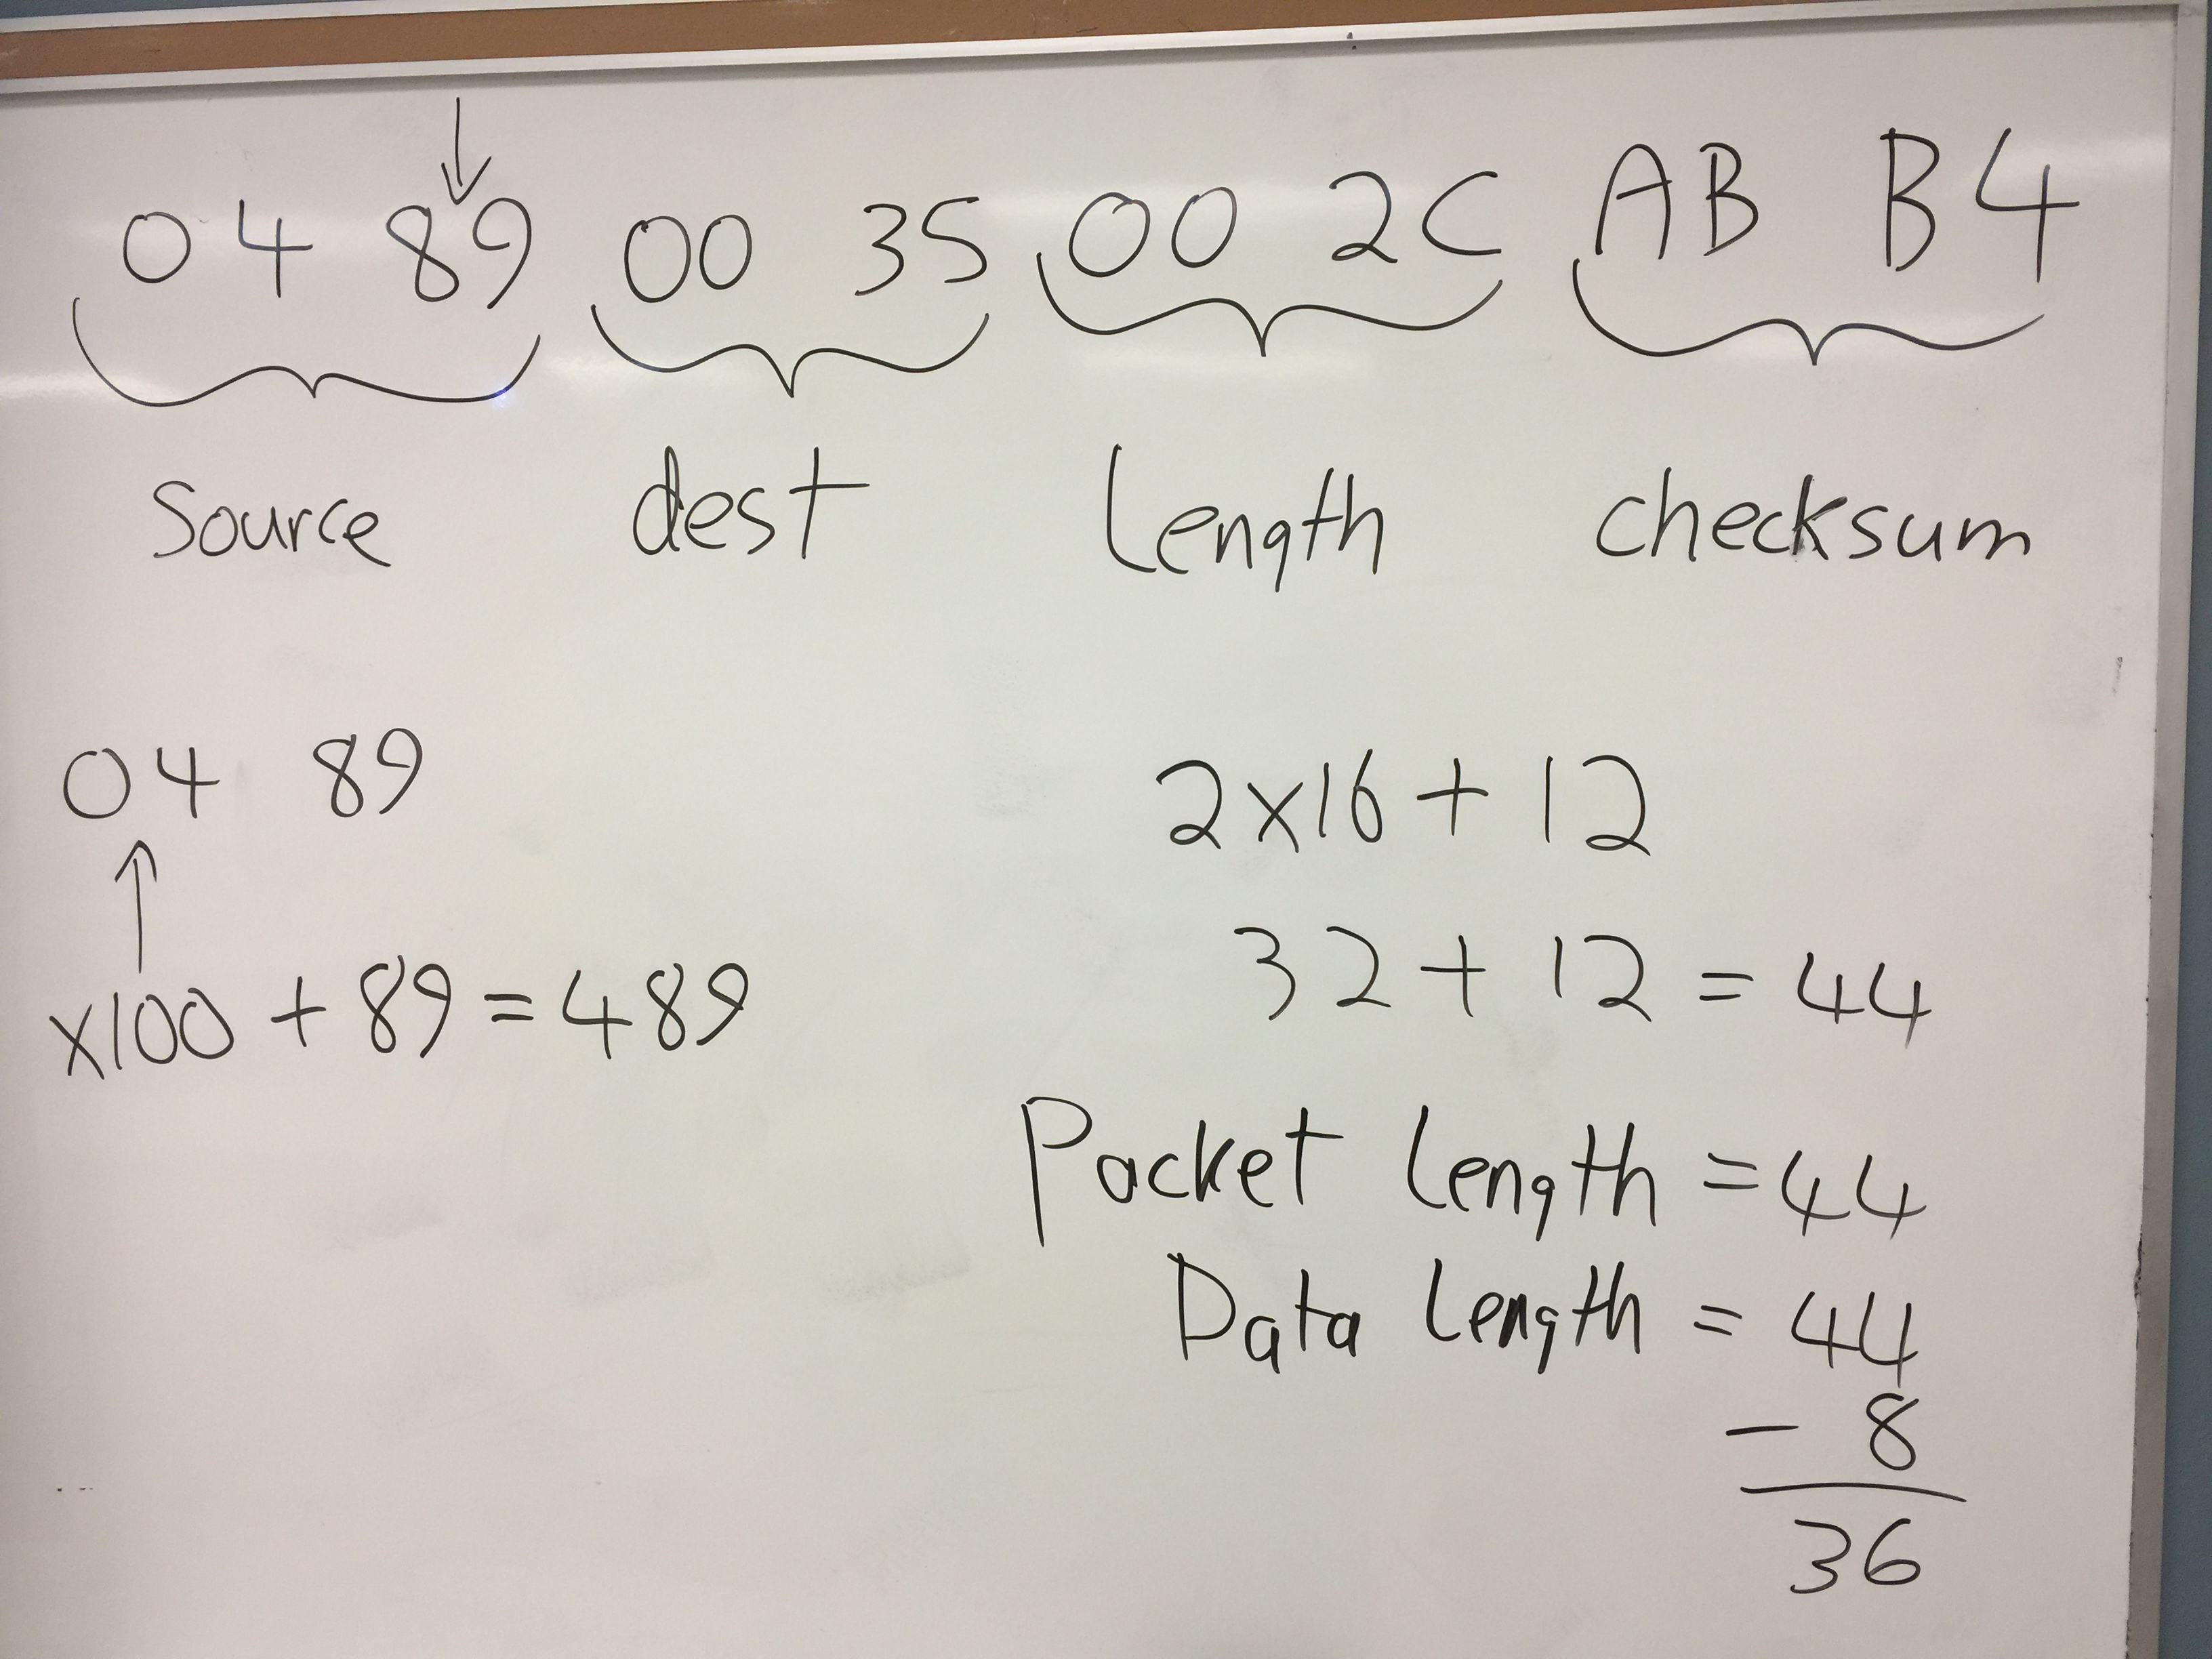 04 89 00 35 00 2C AB B4
Source dest Length checksum
04 89
x100 + 89 = 489
2x16 + 12
32 + 12 = 44
Packet Length = 44
Data Length = 44
- 8
36